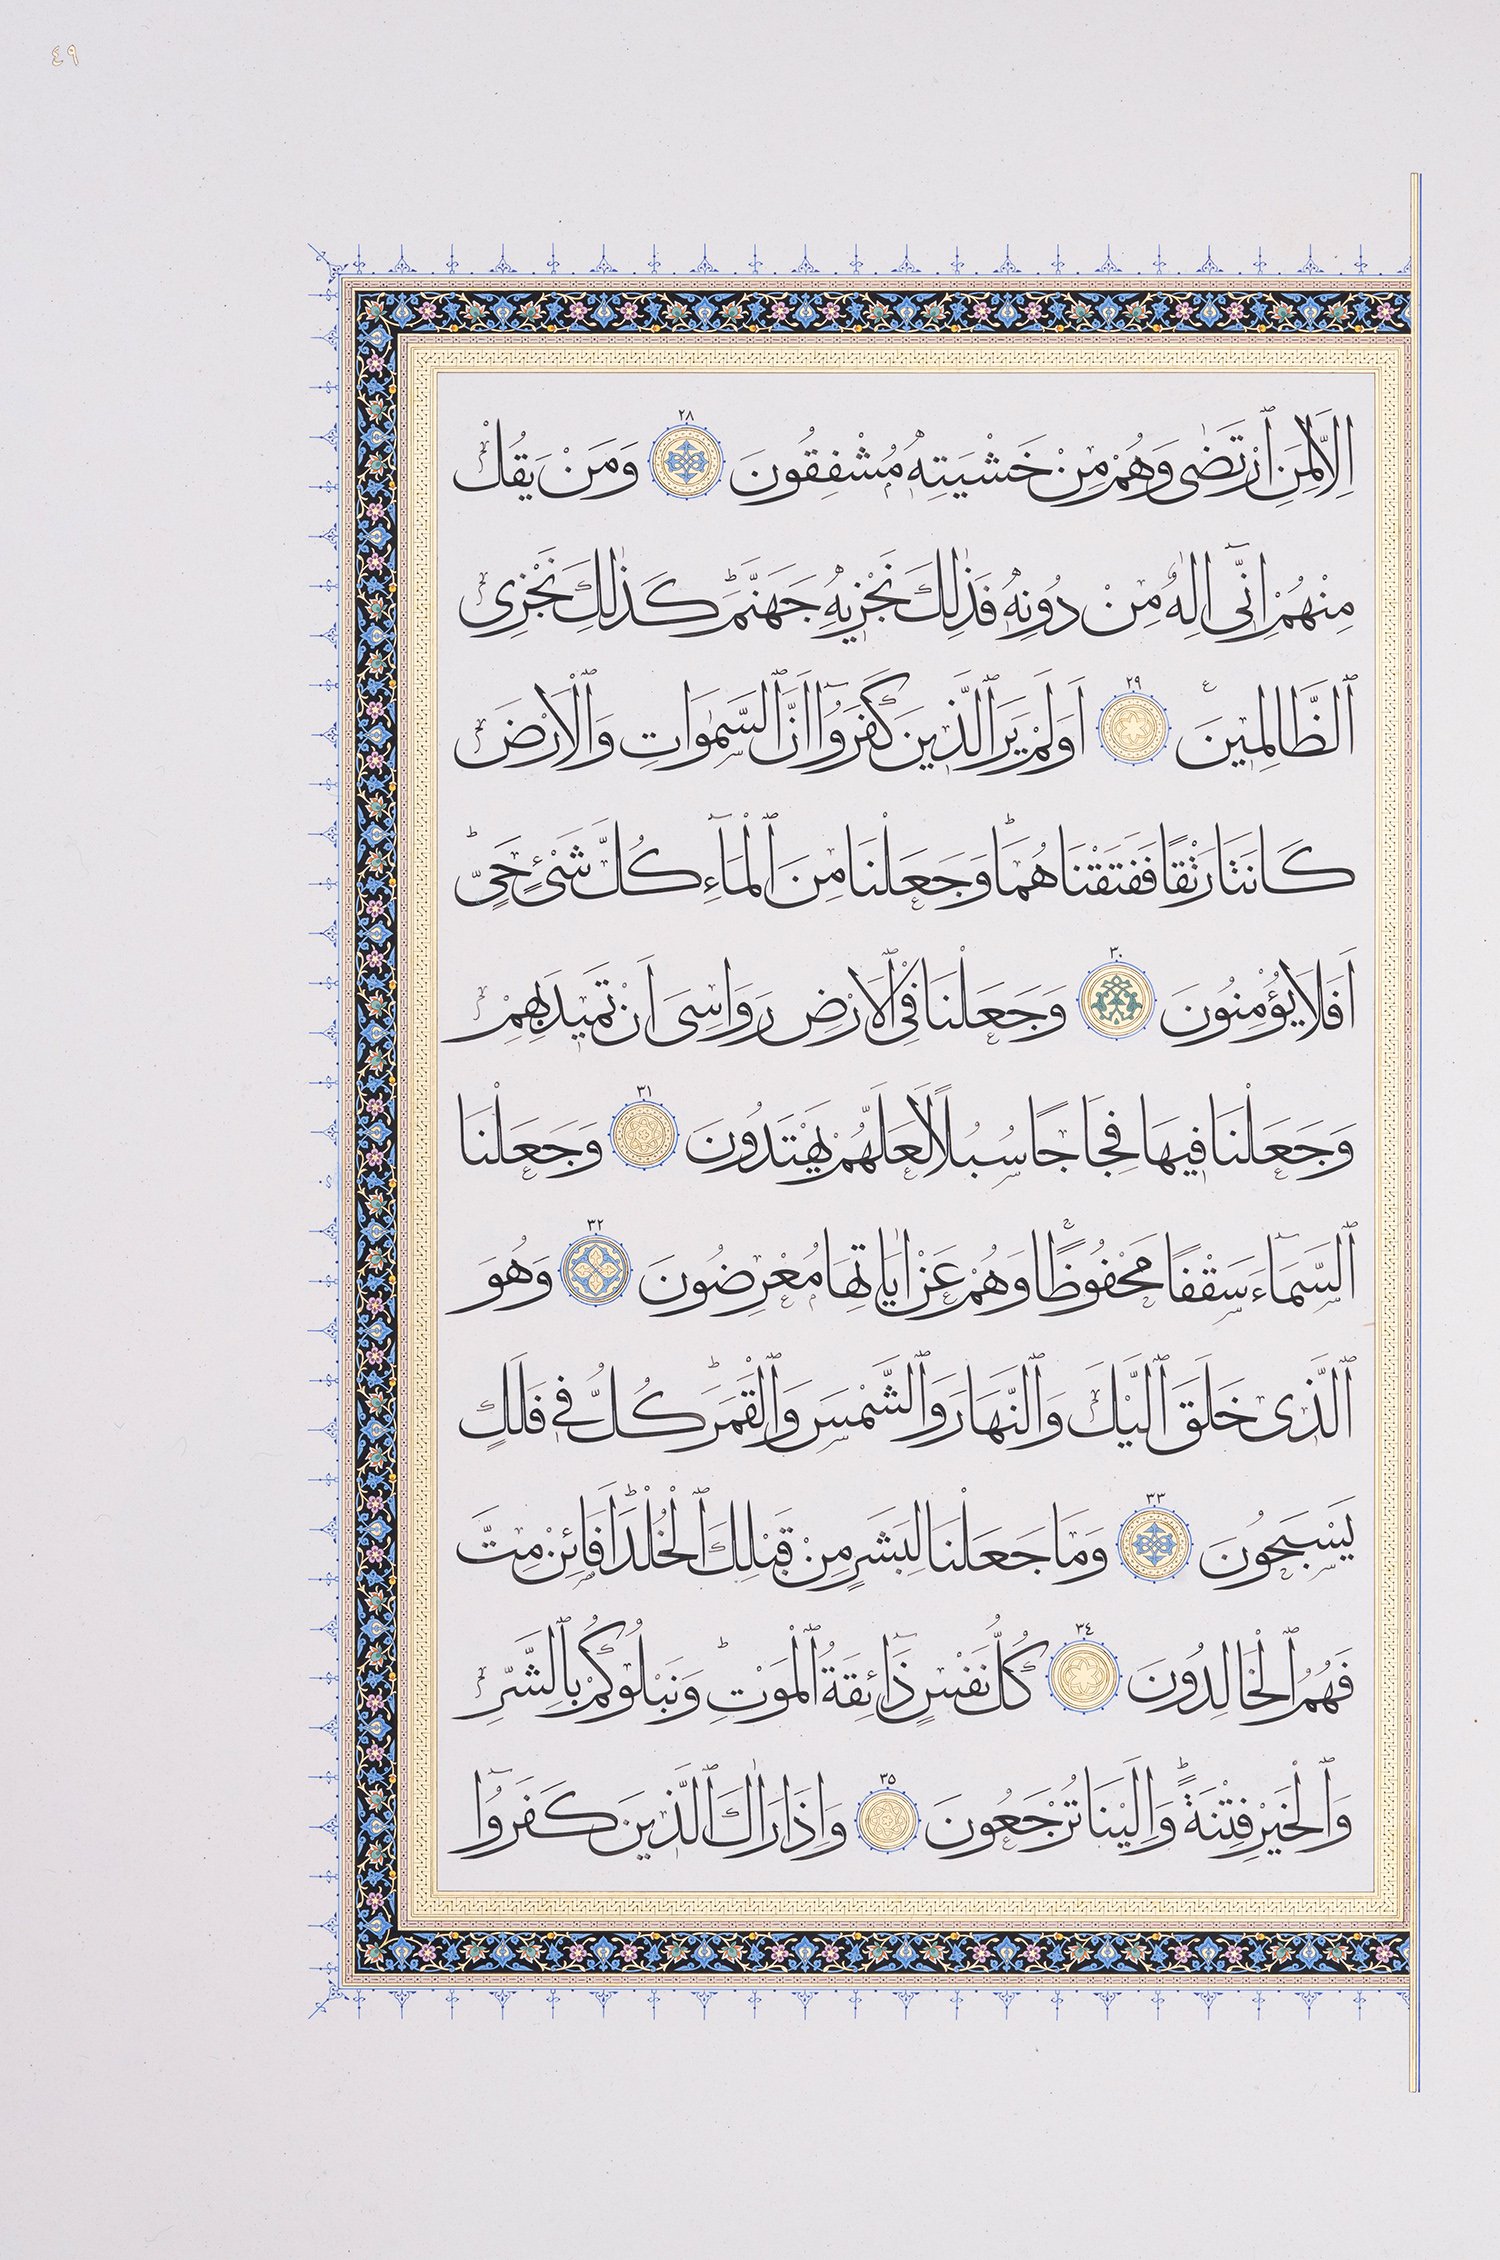 ٤٩
اِلَّا لِمَنِ ٱرْتَضٰى وَهُمْ مِنْ خَشْيَتِهٖ مُشْفِقُونَ ٢٨ وَمَنْ يَقُلْ
مِنْهُمْ اِنّ۪ٓى اِلٰهٌ مِنْ دُونِهٖ فَذٰلِكَ نَجْز۪يهِ جَهَنَّمَۜ كَذٰلِكَ نَجْزِى
ٱلظَّالِم۪ينَ ٢٩ اَوَلَمْ يَرَ ٱلَّذ۪ينَ كَفَرُٓوا اَنَّ ٱلسَّمٰوَاتِ وَٱلْاَرْضَ
كَانَتَا رَتْقًا فَفَتَقْنَاهُمَاۜ وَجَعَلْنَا مِنَ ٱلْمَٓاءِ كُلَّ شَىْءٍ حَىٍّۜ
اَفَلَا يُؤْمِنُونَ ٣٠ وَجَعَلْنَا فِى ٱلْاَرْضِ رَوَاسِىَ اَنْ تَم۪يدَ بِهِمْ
وَجَعَلْنَا ف۪يهَا فِجَاجًا سُبُلًا لَعَلَّهُمْ يَهْتَدُونَ ٣١ وَجَعَلْنَا
ٱلسَّمَٓاءَ سَقْفًا مَحْفُوظًا وَهُمْ عَنْ اٰيَاتِهَا مُعْرِضُونَ ٣٢ وَهُوَ
ٱلَّذ۪ى خَلَقَ ٱلَّيْلَ وَٱلنَّهَارَ وَٱلشَّمْسَ وَٱلْقَمَرَۜ كُلٌّ ف۪ى فَلَكٍ
يَسْبَحُونَ ٣٣ وَمَا جَعَلْنَا لِبَشَرٍ مِنْ قَبْلِكَ ٱلْخُلْدَۜ اَفَائِنْ مِتَّ
فَهُمُ ٱلْخَالِدُونَ ٣٤ كُلُّ نَفْسٍ ذَٓائِقَةُ ٱلْمَوْتِۜ وَنَبْلُوكُمْ بِٱلشَّرِّ
وَٱلْخَيْرِ فِتْنَةًۜ وَاِلَيْنَا تُرْجَعُونَ ٣٥ وَاِذَا رَاٰكَ ٱلَّذ۪ينَ كَفَرُٓوا